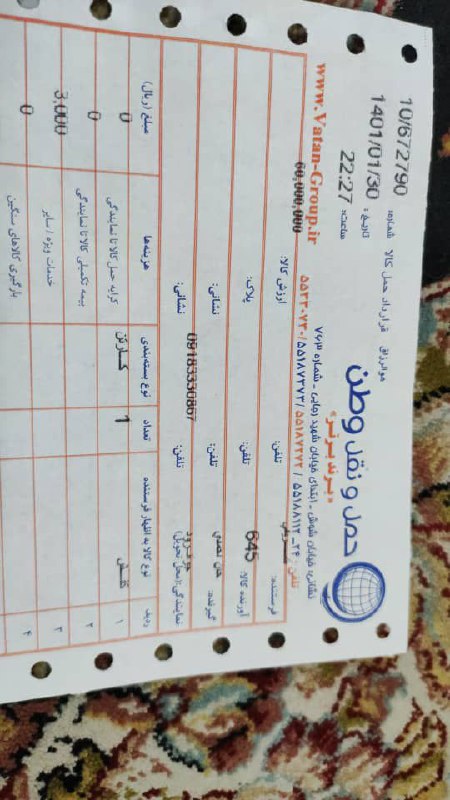 هوالرزاق
حمل و نقل وطن
«برند برتر»
قرارداد حمل کالا شماره: 10/672790
تاریخ: 1401/01/30
ساعت: 22:27
نشانی: خیابان شوش - ابتدای خیابان شهید رجایی - شماره ۷۶۳
تلفن: ۲۴-۵۵۱۸۸۱۱۲ / ۵۵۱۸۷۲۷۲ / ۵۵۱۸۷۲۷۳ / ۵۵۲۲۰۷۲۰
www.Vatan-Group.ir
فرستنده: تلفن: ارزش کالا: 60,000,000
آورنده کالا: 645 تلفن: پلاک:
گیرنده: تلفن: 09183330867 نشانی:
نمایندگی (محل تحویل): تلفن: نشانی:
ردیف نوع کالا به اظهار فرستنده تعداد نوع بسته‌بندی هزینه‌ها مبلغ (ریال)
۱ کفش 1 کارتن کرایه حمل کالا تا نمایندگی 0
۲ بیمه تکمیلی کالا تا نمایندگی 0
۳ خدمات ویژه / سایر 3,000
۴ بارگیری کالاهای سنگین 0